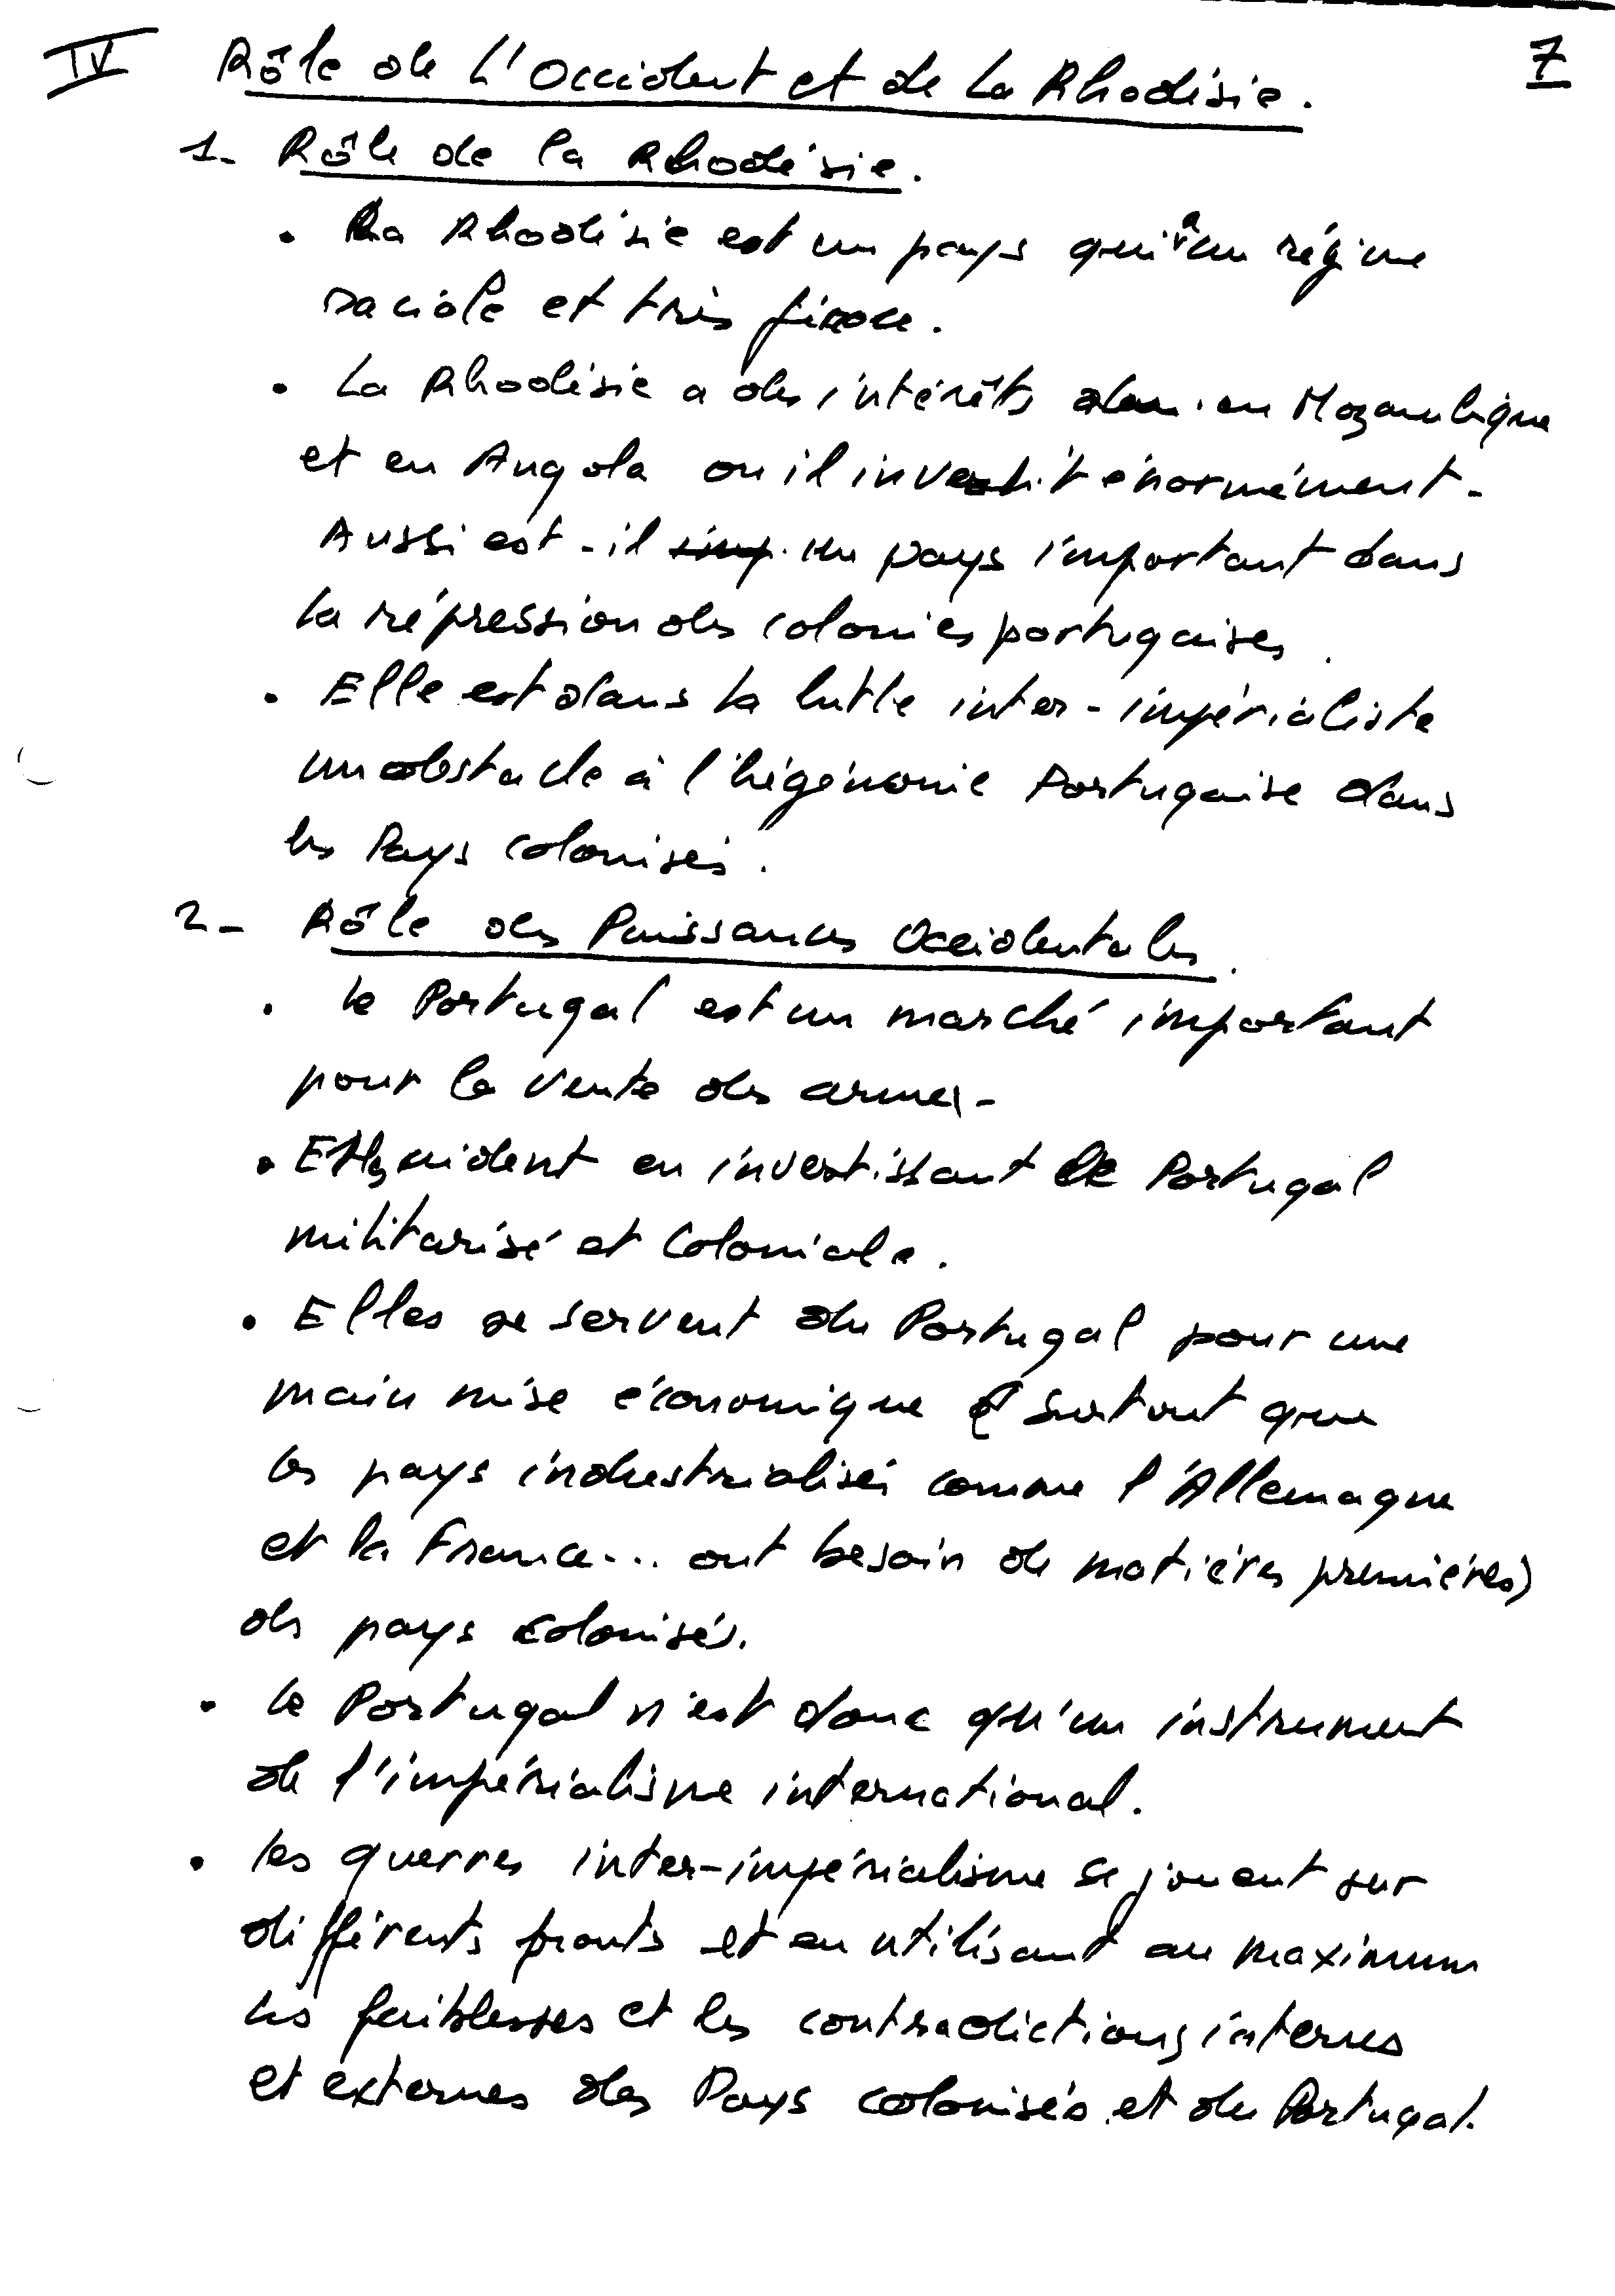 IV Rôle de L'Occident et de La Rhodésie. 7
1- Rôle de la Rhodésie.
. La Rhodésie est un pays qui a un régime
raciale et très féroce.
. La Rhodésie a des intérêts en Mozambique
et en Angola ou il investit énormément.
Aussi est-il un pays important dans
la répression des colonies portugaises.
. Elle est dans la lutte inter-impérialiste
un obstacle à l'hégémonie Portugaise dans
les Pays colonisés.
2- Rôle des Puissances Occidentales.
. le Portugal est un marché important
pour la vente des armes-
. Elles aident en investissant le Portugal
militarisé et Coloniale.
. Elles se servent du Portugal pour une
main mise économique surtout que
les pays industrialisés comme l'Allemagne
et la France... ont besoin de matières premières)
des pays colonisés.
. le Portugal n'est donc qu'un instrument
de l'impérialisme international.
. les guerres inter-impérialisme se jouent sur
différents fronts et en utilisant au maximum
les faiblesses et les contradictions internes
et externes des Pays colonisés et du Portugal.